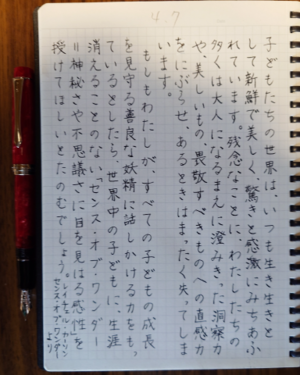 47
子どもたちの世界は、いつも生き生きと
して新鮮で美しく、驚きと感激にみちあふ
れています。残念なことに、わたしたちの
多くは大人になるまえに澄みきった洞察力
や、美しいもの、畏敬すべきものへの直感力
をにぶらせ、あるときはまったく失ってしま
います。
もしもわたしが、すべての子どもの成長
を見守る善良な妖精に話しかける力をもっ
ているとしたら、世界中の子どもに、生涯
消えることのない「センス・オブ・ワンダー
＝神秘さや不思議さに目を見はる感性」を
授けてほしいとたのむでしょう。
レイチェル・カーソン
センス・オブ・ワンダー
より